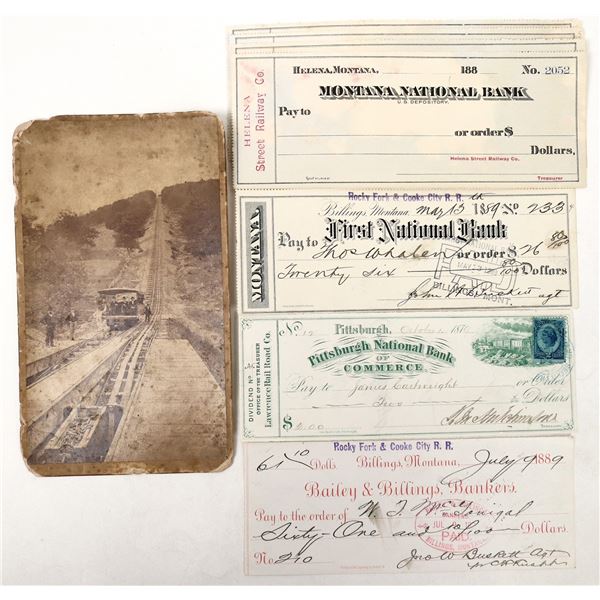 HELENA, MONTANA, 188 No. 2052
HELENA
Street Railway Co.
MONTANA NATIONAL BANK
U.S. DEPOSITORY.
Pay to
or order $
Dollars,
Helena Street Railway Co.
Treasurer
Rocky Fork & Cooke City R. R.
Billings, Montana, Mar 13th 1889 No 233
MONTANA
First National Bank
Pay to Thos Whalen or order $ 26 80/100
Twenty Six 80/100 Dollars
PAID
BILLINGS, MONT.
agt
Pittsburgh, October 1870
No. 12
DIVIDEND No
OFFICE OF THE TREASURER
Lawrence Rail Road Co.
Pittsburgh National Bank
OF
COMMERCE.
Pay to James Cartwright or Order
Two Dollars
$ 2.00
Rocky Fork & Cooke City R. R.
61 10 Dolls. Billings, Montana, July 9 1889
Bailey & Billings, Bankers.
Pay to the order of
Sixty-One and 10/100 Dollars.
JUL
PAID
BILLINGS, MONTANA
No. 210
Jno W Buskett Agt